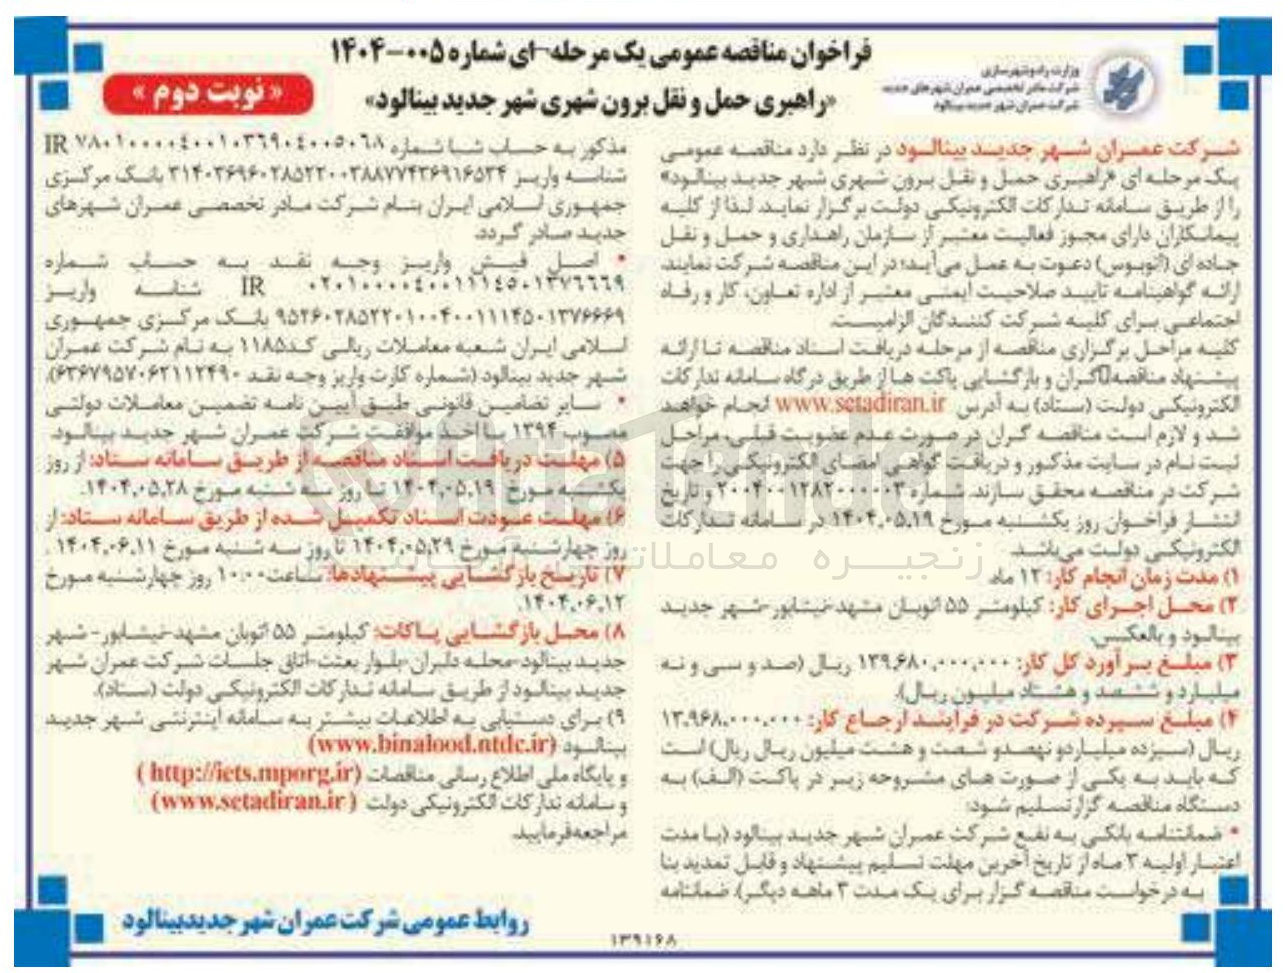 فراخوان مناقصه عمومی یک مرحله-ای شماره ۰۰۵-۱۴۰۴
«راهبری حمل و نقل برون شهری شهر جدید بینالود»
« نوبت دوم »
وزارت راه و شهرسازی
شرکت مادر تخصصی عمران شهرهای جدید
شرکت عمران شهر جدید بینالود
شرکت عمران شهر جدید بینالود در نظر دارد مناقصه عمومی
یک مرحله ای «راهبری حمل و نقل برون شهری شهر جدید بینالود»
را از طریق سامانه تدارکات الکترونیکی دولت برگزار نماید. لذا از کلیه
پیمانکاران دارای مجوز فعالیت معتبر از سازمان راهداری و حمل و نقل
جاده ای (اتوبوس) دعوت به عمل می‌آید؛ در این مناقصه شرکت نمایند.
ارائه گواهینامه تایید صلاحیت ایمنی معتبر از اداره تعاون، کار و رفاه
اجتماعی برای کلیه شرکت کنندگان الزامیست.
کلیه مراحل برگزاری مناقصه از مرحله دریافت اسناد مناقصه تا ارائه
پیشنهاد مناقصه گران و بازگشایی پاکت ها از طریق درگاه سامانه تدارکات
الکترونیکی دولت (ستاد) به آدرس www.setadiran.ir انجام خواهند
شد و لازم است مناقصه گران در صورت عدم عضویت قبلی، مراحل
ثبت نام در سایت مذکور و دریافت گواهی امضای الکترونیکی را جهت
شرکت در مناقصه محقق سازند. شماره ۲۰۰۴۰۰۱۲۸۲۰۰۰۰۰۳ و تاریخ
انتشار فراخوان روز یکشنبه مورخ ۱۴۰۴,۰۵,۱۹ در سامانه تدارکات
الکترونیکی دولت می‌باشد.
۱) مدت زمان انجام کار: ۱۲ ماه
۲) محل اجرای کار: کیلومتر ۵۵ اتوبان مشهد-نیشابور-شهر جدید
بینالود و بالعکس.
۳) مبلغ برآورد کل کار: ۱۳۹,۶۸۰,۰۰۰,۰۰۰ ریال (صد و سی و نه
میلیارد و ششصد و هشتاد میلیون ریال).
۴) مبلغ سپرده شرکت در فرایند ارجاع کار: ۱۳,۹۶۸,۰۰۰,۰۰۰
ریال (سیزده میلیارد و نهصد و شصت و هشت میلیون ریال ریال) است
که باید به یکی از صورت های مشروحه زیر در پاکت (الف) به
دستگاه مناقصه گزار تسلیم شود:
* ضمانتنامه بانکی به نفع شرکت عمران شهر جدید بینالود (با مدت
اعتبار اولیه ۳ ماه از تاریخ آخرین مهلت تسلیم پیشنهاد و قابل تمدید بنا
به درخواست مناقصه گزار برای یک مدت ۳ ماهه دیگر). ضمانتنامه
مذکور به حساب شبا شماره IR ۷۸۰۱۰۰۰۰۴۰۰۱۰۳۶۹۰۴۰۰۵۰۶۸
شناسه واریز ۳۱۴۰۳۶۹۶۰۲۸۵۲۲۰۰۳۸۸۷۷۴۳۶۹۱۶۵۳۴ بانک مرکزی
جمهوری اسلامی ایران بنام شرکت مادر تخصصی عمران شهرهای
جدید صادر گردد.
* اصل فیش واریز وجه نقد به حساب شماره
IR ۰۲۰۱۰۰۰۰۴۰۰۱۱۱۴۵۰۱۳۷۶۶۶۹ شناسه واریز
۹۵۲۶۰۲۸۵۲۲۰۱۰۰۴۰۰۱۱۱۴۵۰۱۳۷۶۶۶۹ بانک مرکزی جمهوری
اسلامی ایران شعبه معاملات ریالی کد ۱۱۸۵ به نام شرکت عمران
شهر جدید بینالود (شماره کارت واریز وجه نقد ۶۳۶۷۹۵۷۰۶۲۱۱۲۴۹۰).
* سایر تضامین قانونی طبق آیین نامه تضمین معاملات دولتی
مصوب ۱۳۹۴ با اخذ موافقت شرکت عمران شهر جدید بینالود.
۵) مهلت دریافت اسناد مناقصه از طریق سامانه ستاد: از روز
یکشنبه مورخ ۱۴۰۴,۰۵,۱۹ تا روز سه شنبه مورخ ۱۴۰۴,۰۵,۲۸.
۶) مهلت عودت اسناد تکمیل شده از طریق سامانه ستاد: از
روز چهارشنبه مورخ ۱۴۰۴,۰۵,۲۹ تا روز سه شنبه مورخ ۱۴۰۴,۰۶,۱۱ .
۷) تاریخ بازگشایی پیشنهادها: ساعت ۱۰:۰۰ روز چهارشنبه مورخ
۱۴۰۴,۰۶,۱۲.
۸) محل بازگشایی پاکات: کیلومتر ۵۵ اتوبان مشهد-نیشابور- شهر
جدید بینالود-محله دلبران-بلوار بعثت-اتاق جلسات شرکت عمران شهر
جدید بینالود از طریق سامانه تدارکات الکترونیکی دولت (ستاد).
۹) برای دستیابی به اطلاعات بیشتر به سامانه اینترنتی شهر جدید
بینالود (www.binalood.ntdc.ir)
و پایگاه ملی اطلاع رسانی مناقصات (http://iets.mporg.ir )
و سامانه تدارکات الکترونیکی دولت (www.setadiran.ir )
مراجعه فرمایید.
روابط عمومی شرکت عمران شهر جدید بینالود
۱۳۹۱۶۸